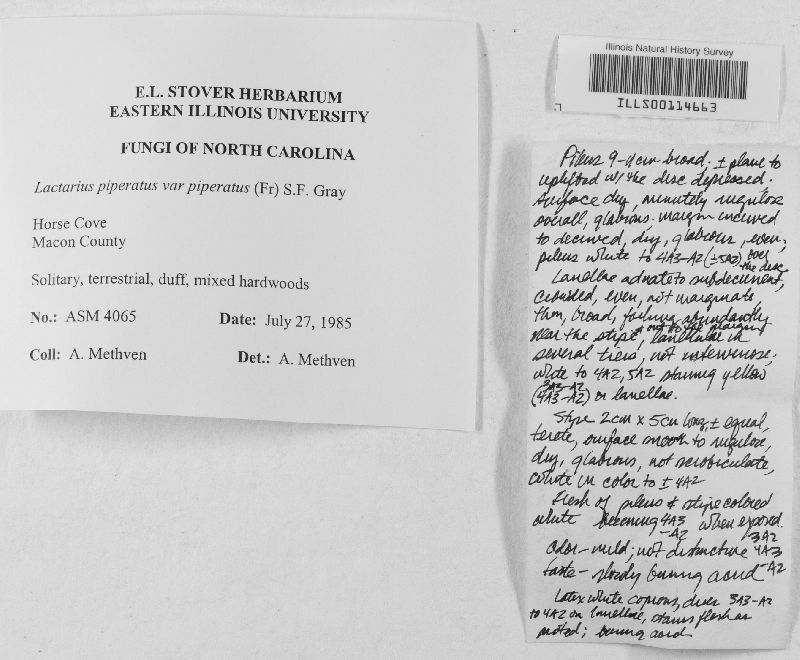 E.L. STOVER HERBARIUM
EASTERN ILLINOIS UNIVERSITY
FUNGI OF NORTH CAROLINA
Lactarius piperatus var piperatus (Fr) S.F. Gray
Horse Cove
Macon County
Solitary, terrestrial, duff, mixed hardwoods
No.: ASM 4065 Date: July 27, 1985
Coll: A. Methven Det.: A. Methven
Illinois Natural History Survey
ILLS00114663
Pileus 9-11cm broad; ± plane to
uplifted w/ the disc depressed.
Surface dry, minutely rugulose
overall, glabrous. margin incurved
to decurved, dry, glabrous, even;
pileus white to 4A3-A2 (±5A2) over
the disc
Lamellae adnate to subdecurrent,
crowded, even, not marginate
thin, broad, forking abundantly
near the stipe & out to the margin
lamellulae in
several tiers, not intervenose;
white to 4A2, 5A2 staining yellow
3A3-A2
(4A3-A2) on lamellae.
Stipe 2cm x 5cm long, ± equal,
terete, surface smooth to rugulose,
dry, glabrous, not scrobiculate,
white in color to ± 4A2
Flesh of pileus & stipe colored
white becoming 4A3-A2 when exposed.
3A2
Odor - mild; not distinctive 4A3-A2
taste - slowly burning acrid
Latex white copious, dries 3A3-A2
to 4A2 on lamellae, stains flesh as
noted; burning acrid